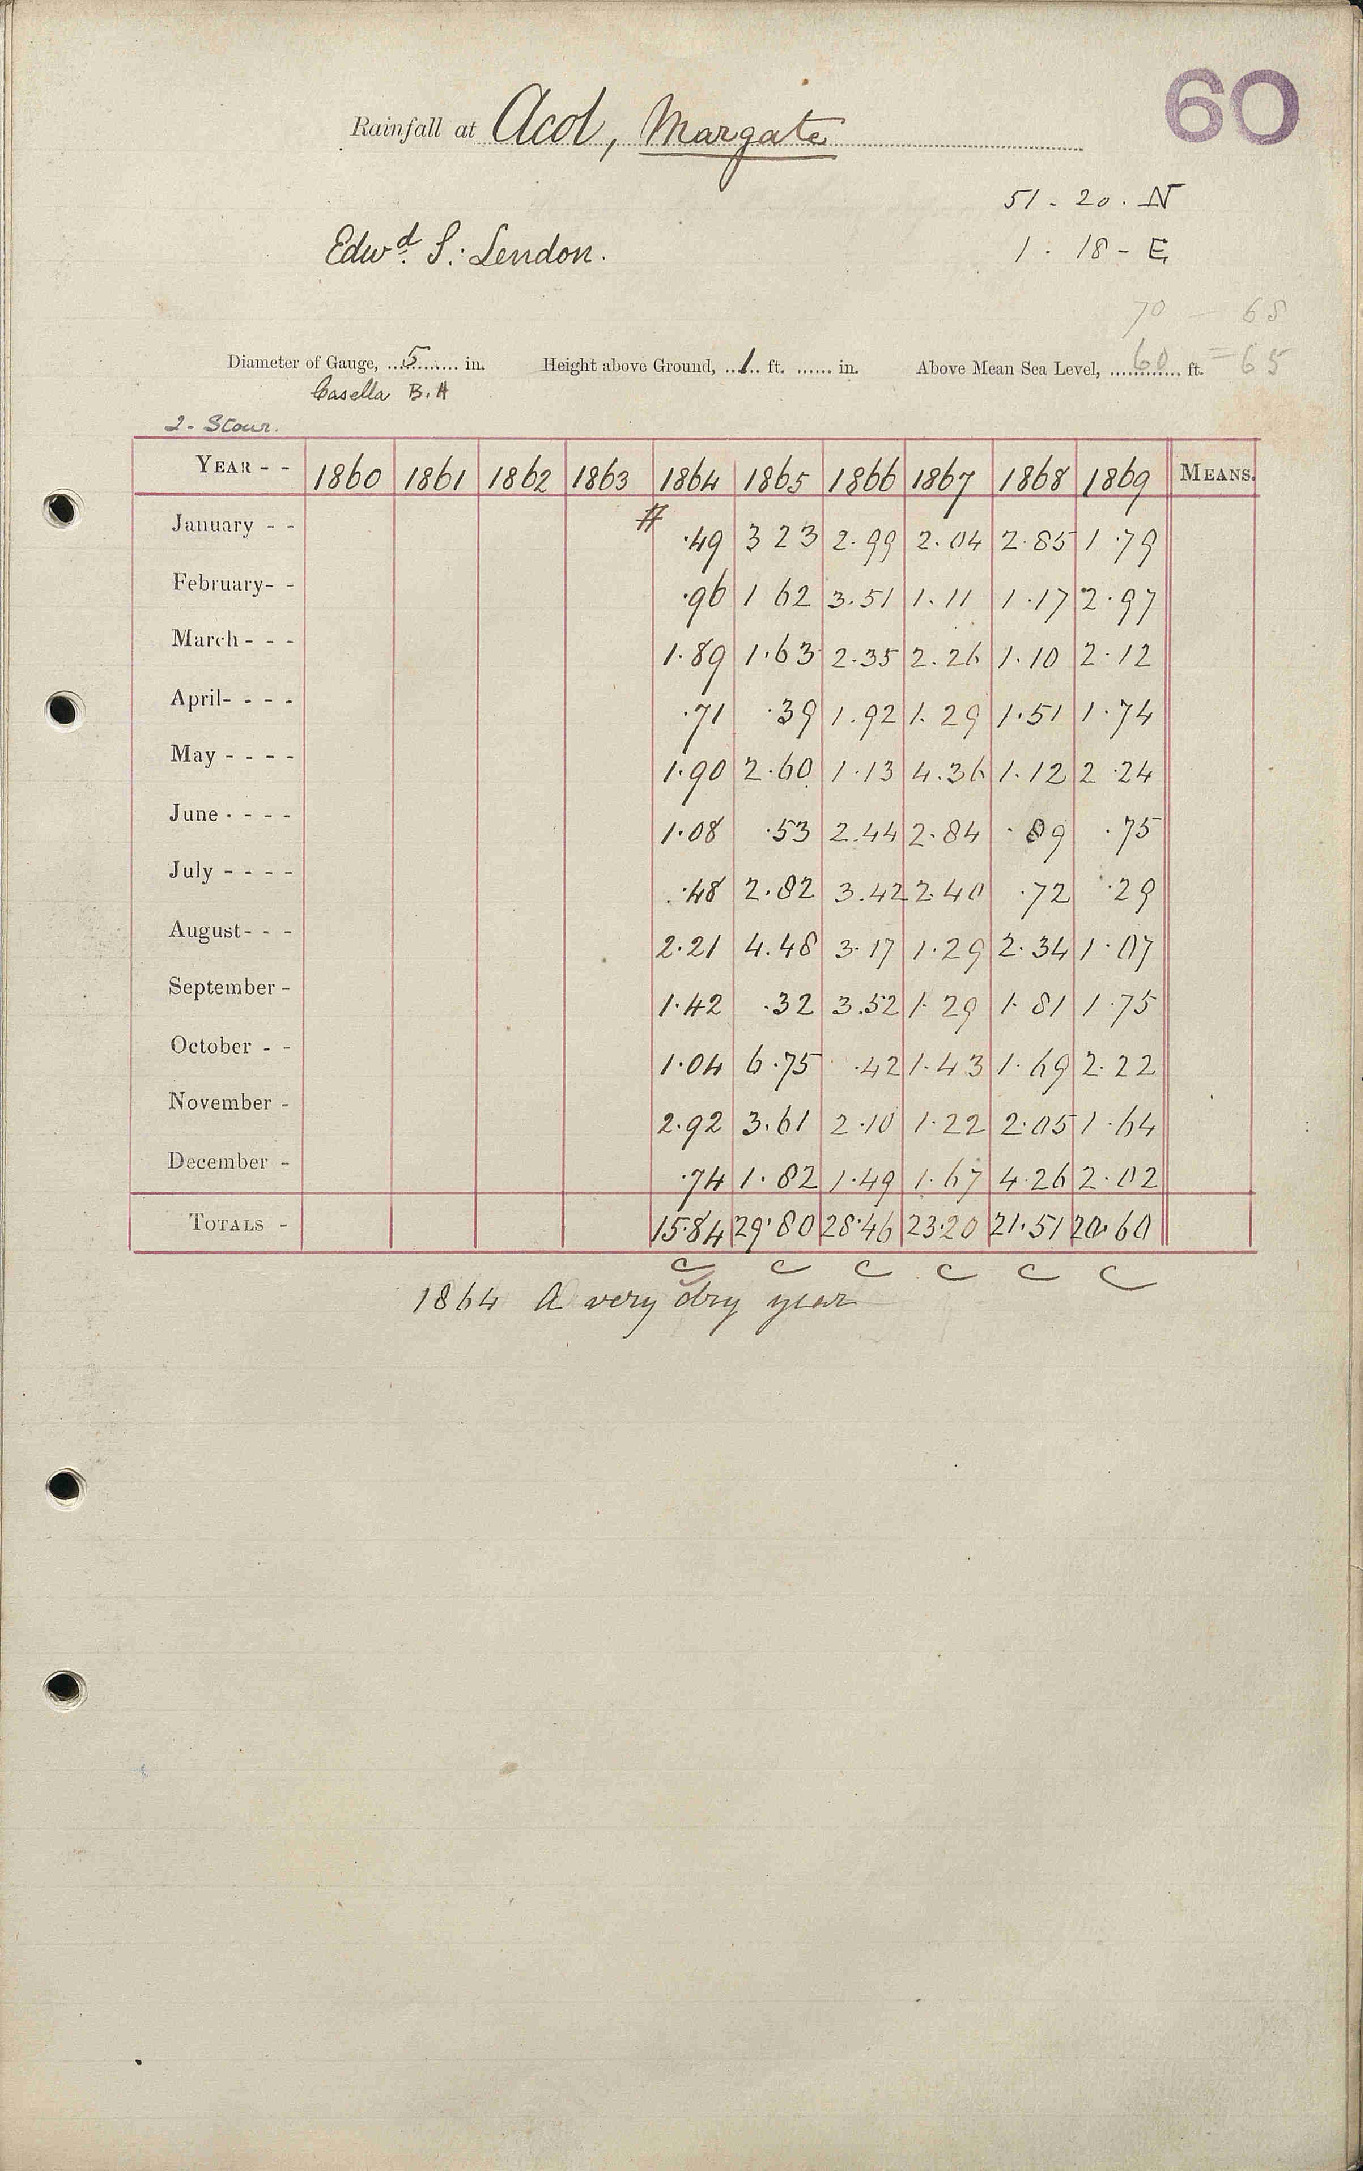 60
Rainfall at Acol, Margate
51 - 20 . N
Edwd. S. Lendon.
1 . 18 - E
70 - 68
Diameter of Gauge, 5 in. Height above Ground, 1 ft. in. Above Mean Sea Level, 60 ft. = 65
Casella B. H
2 - Stour.
YEAR - - 1860 1861 1862 1863 1864 1865 1866 1867 1868 1869 MEANS.
January - - # .49 3 23 2.99 2.04 2.85 1.79
February - - .96 1 62 3.51 1.11 1.17 2.97
March - - - 1.89 1.63 2.35 2.26 1.10 2.12
April - - - - .71 .39 1.92 1.29 1.51 1.74
May - - - - 1.90 2.60 1.13 4.36 1.12 2.24
June - - - - 1.08 .53 2.44 2.84 .89 .75
July - - - - .48 2.82 3.42 2.40 .72 .29
August - - - 2.21 4.48 3.17 1.29 2.34 1.07
September - 1.42 .32 3.52 1.29 1.81 1.75
October - - 1.04 6.75 .42 1.43 1.69 2.22
November - 2.92 3.61 2.10 1.22 2.05 1.64
December - .74 1.82 1.49 1.67 4.26 2.02
TOTALS - 15.84 29.80 28.46 23.20 21.51 20.60
c c c c c c
1864 A very dry year